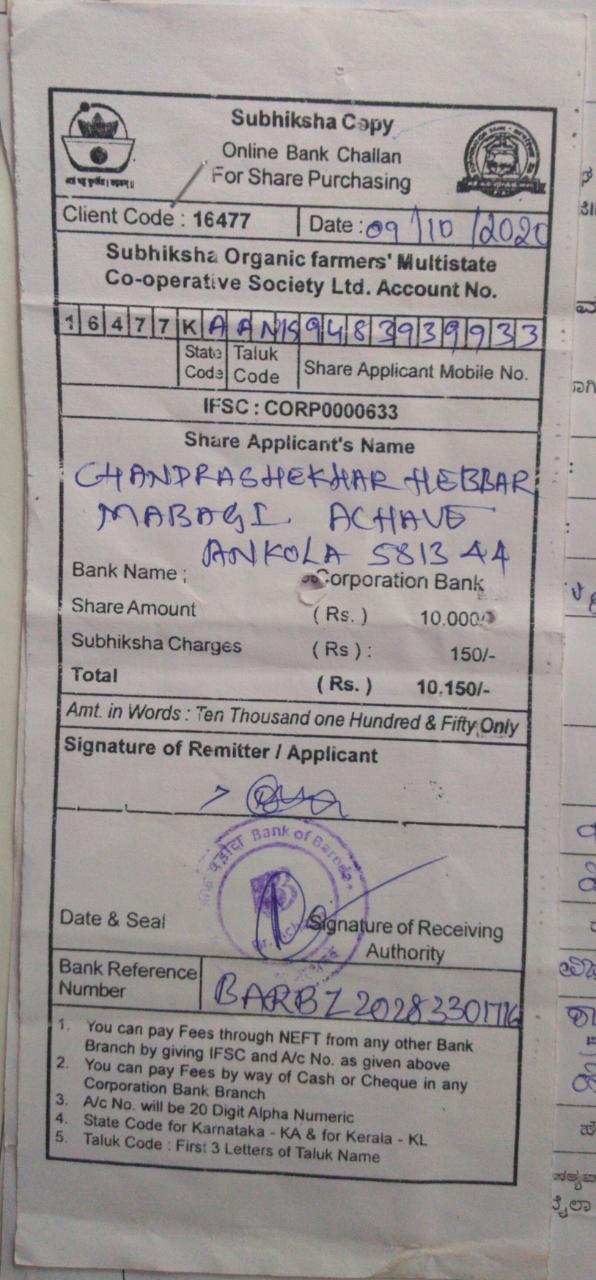 Subhiksha Copy
Online Bank Challan
For Share Purchasing
Client Code : 16477
Date : 09/10/2020
Subhiksha Organic farmers' Multistate
Co-operative Society Ltd. Account No.
16477KAANK9483939933
State Code
Taluk Code
Share Applicant Mobile No.
IFSC : CORP0000633
Share Applicant's Name
CHANDRASHEKHAR HEBBAR
MABAGI ACHAVE
ANKOLA 581344
Bank Name ; Corporation Bank
Share Amount (Rs.) 10.000/-
Subhiksha Charges (Rs): 150/-
Total (Rs.) 10.150/-
Amt. in Words : Ten Thousand one Hundred & Fifty Only
Signature of Remitter / Applicant
Bank of Baroda
Date & Seal
Signature of Receiving
Authority
Bank Reference
Number
BARBZ20283301716
1. You can pay Fees through NEFT from any other Bank
Branch by giving IFSC and A/c No. as given above
2. You can pay Fees by way of Cash or Cheque in any
Corporation Bank Branch
3. A/c No. will be 20 Digit Alpha Numeric
4. State Code for Karnataka - KA & for Kerala - KL
5. Taluk Code : First 3 Letters of Taluk Name